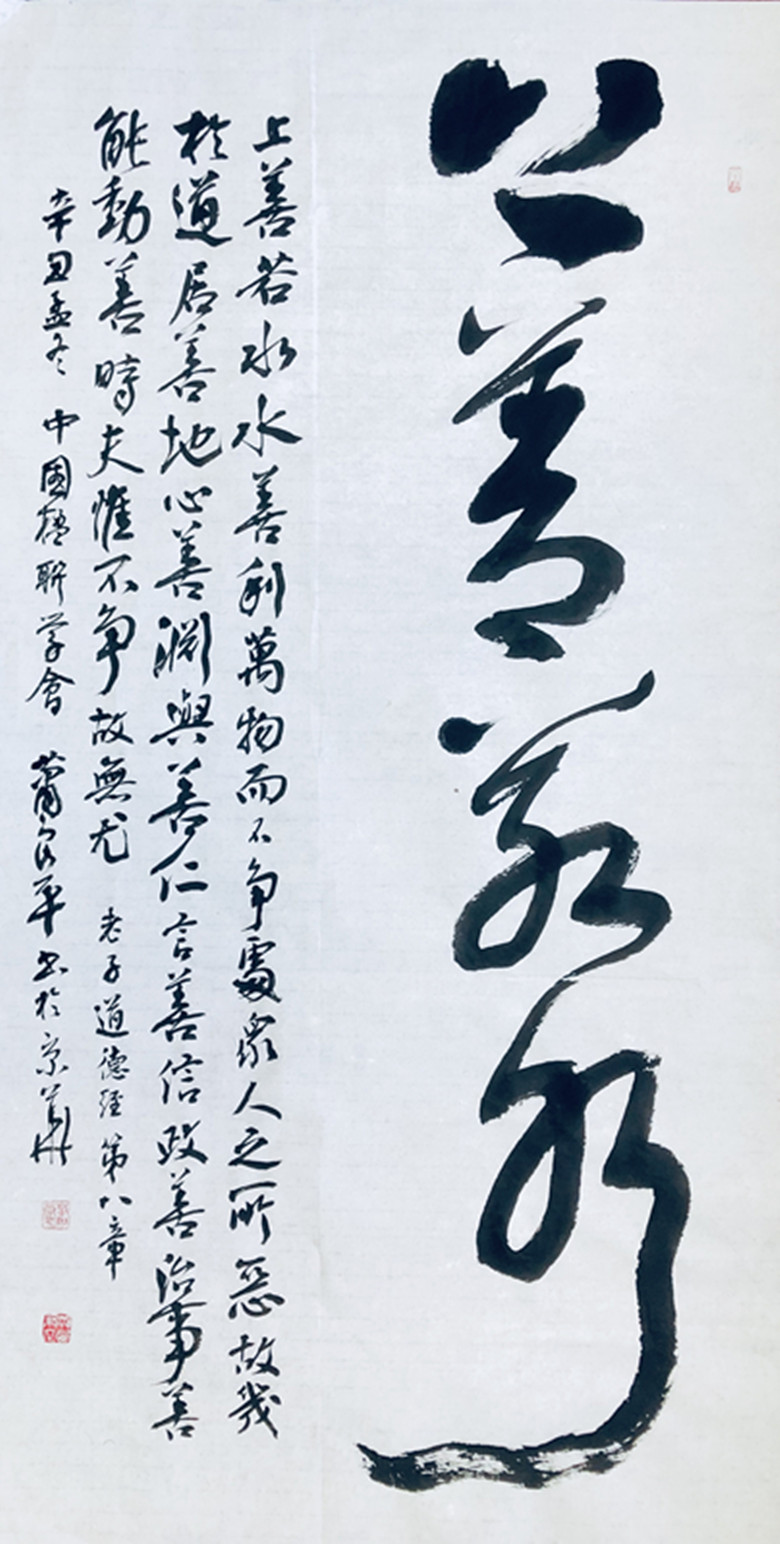 上善若水
上善若水水善利萬物而不争處衆人之所惡故幾
於道居善地心善淵與善仁言善信政善治事善
能動善時夫惟不争故無尤 老子道德經第八章
辛丑孟冬 中國楹聯学會 蕭良平书於京